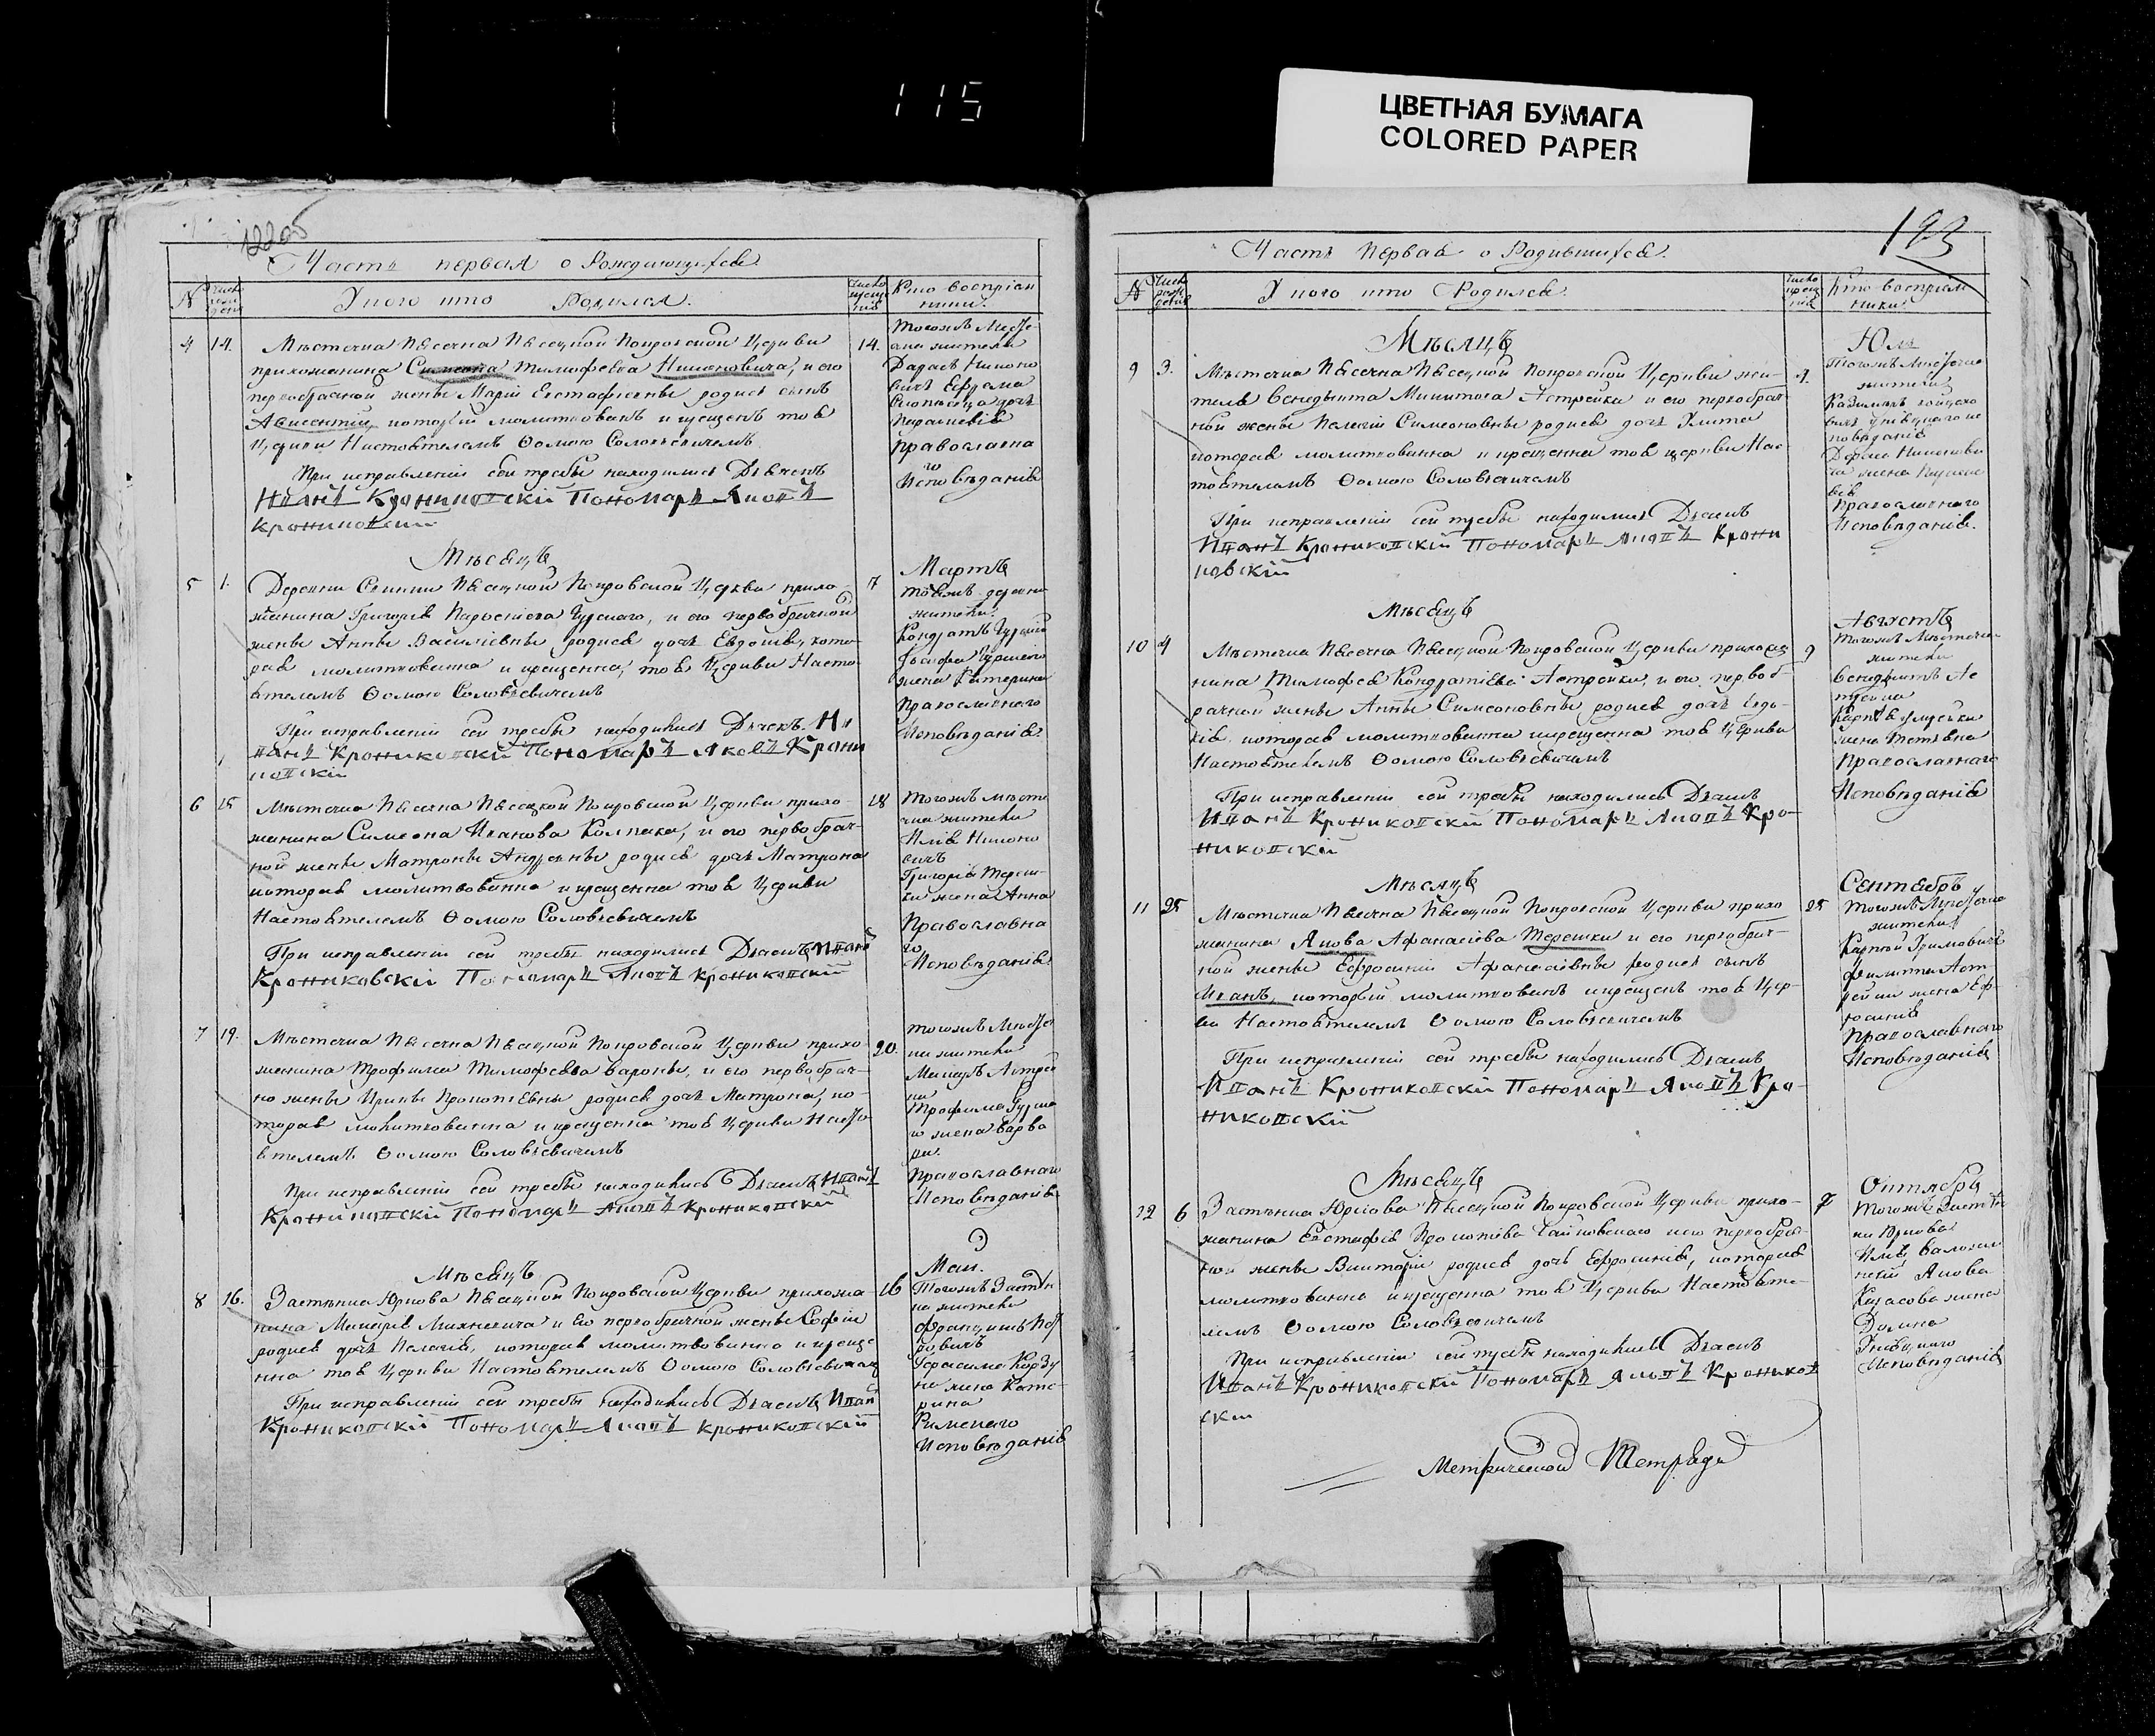 115
ЦВЕТНАЯ БУМАГА
COLORED PAPER
122об
Часть первая о Рождающихся.
N
У кого кто Родился.
Кто воспріем
ники.
4 14. Мѣстечка Пѣсочна Пѣсоцкой Покровской Церкви 14.
прихожанина Симеона Тимофеева Никоновича, и его
первобрачной жены Маріи Евстафіевны родися сынъ
Авксентій, который молитвованъ и крещенъ тоя
Церкви Настоятелемъ Ѳомою Соловіевичемъ
При исправленіи сей требы находились Дьячекъ
Иванъ Крониковскій Пономарь Яковъ
Крониковскій
тогожъ Месте
чка жители
Фадей Никоно
вичъ Ефрема
дочь
Параскевія
Православна
го
Исповѣданія
Мѣсяцъ
Мартъ
5 1. Деревни Пѣсоцкой Покровской Церкви прихо 7
жанина Григорія Гурского, и его первобрачной
жены Анны Василіевны родися дочь Евдокія, кото
рая молитвованна и крещенна, тоя Церкви Насто
ятелемъ Ѳомою Соловіевичемъ
При исправленіи сей требы находились Дьячекъ И
ванъ Крониковскій Пономарь Яковъ Крони
ковскій
тояжъ деревни
жители
Кондратъ Гурскій
Іосифа Гурскаго
жена Катерина
Православнаго
Исповѣданія
6 25 Мѣстечка Пѣсочна Пѣсоцкой Покровской Церкви прихо 28
жанина Симеона Иванова Колпака, и его первобрач
ной жены Матроны Андреевны родися дочь Матрона
которая молитвованна и крещенна тоя Церкви
Настоятелемъ Ѳомою Соловіевичемъ
При исправленіи сей требы находились Дьячекъ Иванъ
Крониковскій Пономарь Яковъ Крониковскій
Тогожъ мѣсте
чка жители
Илія Никоно
вичъ
Григорія Тереш
ки жена Анна
Православна
го
Исповѣданія
7 19. Мѣстечка Пѣсочна Пѣсоцкой Покровской Церкви прихо 20.
жанина Трофима Тимофеева Вароны, и его первобрач
но жены Ирины Прокопіевны родися дочь Матрона, ко
торая молитвованна и крещенна тоя Церкви Насто
ятелемъ Ѳомою Соловіевичемъ
При исправленіи сей требы находились Дьячекъ Иванъ
Крониковскій Пономарь Яковъ Крониковскій
тогожъ Мѣсте
чка жители
Астрей
ка
Трофима Гурска
го жена Варва
ра
Православнаго
Исповѣданія
Мѣсяцъ
Маи.
8 16. Застѣнка Юркова Пѣсоцкой Покровской Церкви прихожа 16
нина Михневича и Его первобрачной жены Софіи
родися дочь Пелагія, которая молитвованно и креще
нна тоя Церкви Настоятелемъ Ѳомою Соловіевичемъ
При исправленіи сей требы находились Дьячекъ Иванъ
Крониковскій Пономарь Яковъ Крониковскій
Тогожъ Застѣн
ка жители
Францишкъ
Герасима Корзу
на жена Кате
рина
Римского
Исповѣданія
123
Часть Первая о Родившихся.
N
У кого кто Родился.
Кто воспріем
ники.
Мѣсяцъ
Юль
9 3. Мѣстечка Пѣсочна Пѣсоцкой Покровской Церкви жи 4.
теля Венедыкта Микитова Астрейки и его первобрач
ной жены Пелагіи Симеоновны родися дочь Улита
которая молитвованна и крещенна тоя церкви Нас
тоятелемъ Ѳомою Соловіевичемъ
При исправленіи сей требы находились Дьячекъ
Иванъ Крониковскій Пономарь Яковъ Крони
ковскій
Тогожъ Мѣстечка
жители
вичъ Уніяцкого ис
повѣданія
Никонови
ча жена
Православного
Исповѣданія.
Мѣсяцъ
Августъ
10 4 Мѣстечка Пѣсочна Пѣсоцкой Покровской Церкви прихожа 9
нина Тимофея Кондратіева Астрейки, и его первоб
рачной жены Анны Симеоновны родися дочь Евдо
кія которая молитвованна и крещенна тоя Церкви
Настоятелемъ Ѳомою Соловіевичемъ
При исправленіи сей требы находились Дьячекъ
Иванъ Крониковскій Пономарь Яковъ Кро
никовскій
Тогожъ Мѣстечка
жители
Венедыктъ Ас
трейка
жена Татьяна
Православнаго
Исповѣданія
Мѣсяцъ
Сентябрь
11 25 Мѣстечка Пѣсочна Пѣсоцкой Покровской Церкви прихо 25
жанина Якова Афанасіева Терешки и его первобрач
ной жены Ефросиніи Афанасіевны родися сынъ
Иванъ, который молитвованъ и крещенъ тоя Цер
кви Настоятелемъ Ѳомою Соловіевичемъ
При исправленіи сей требы находились Дьячекъ
Иванъ Крониковскій Пономарь Яковъ Кро
никовскій
Тогожъ Мѣстечка
жители
Филиппа Аст
рейки жена Еф
росинія
Православнаго
Исповѣданія
Мѣсяцъ
Октября
12 6 Застѣнка Юркова Пѣсоцкой Покровской Церкви прихо 7
жанина Евстафія Прокопіева Чайковскаго и его первобрач
ной жены Викторіи родися дочь Ефросинія, которая
молитвованна и крещенна тоя Церкви Настояте
лемъ Ѳомою Соловіевичемъ
При исправленіи сей требы находились Дьячекъ
Иванъ Крониковскій Пономарь Яковъ Кроников
скій
Тогожъ Застѣн
ка Юркова
Якова
жена
Домна
Уніяцкого
Исповѣданія
Метрической Тетради